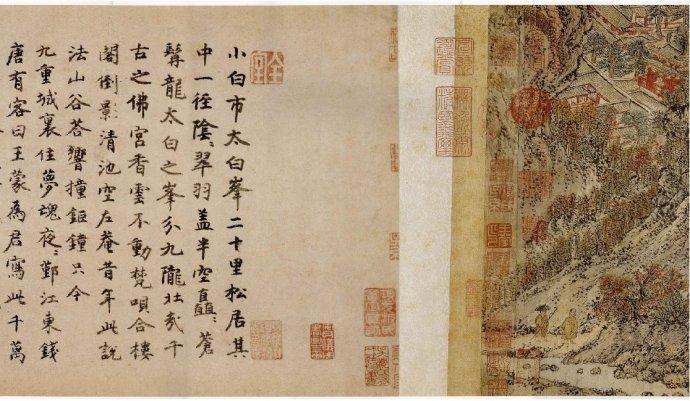 小白市太白峯二十里松居其
中一徑陰〻翠羽蓋半空矗〻蒼
髯龍太白之峯分九隴壯哉千
古之佛宮香雲不動梵唄合樓
閣倒影清池空左菴昔年此說
法山谷荅響撞鉅鐘只今
九重城裏住夢魂夜〻鄞江東錢
唐有客曰王蒙為君寫此千萬